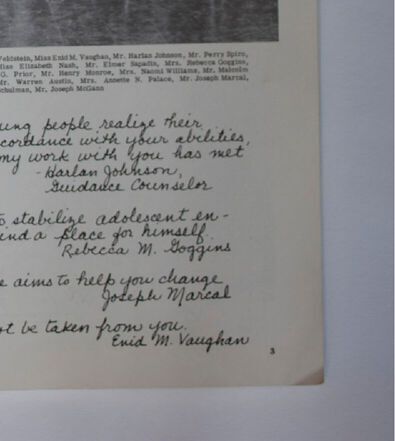 Feldstein, Miss Enid M. Vaughan, Mr. Harlan Johnson, Mr. Perry Spiro,
Miss Elizabeth Nash, Mr. Elmer Sapadin, Mrs. Rebecca Goggins,
G. Prior, Mr. Henry Monroe, Mrs. Naomi Williams, Mr. Malcolm
Mr. Warren Austin, Mrs. Annette N. Palace, Mr. Joseph Marcal,
Schulman, Mr. Joseph McGann
ung people realize their
cordance with your abilities,
my work with you has met
- Harlan Johnson,
Guidance Counselor
to stabilize adolescent en-
ind a place for himself.
Rebecca M. Goggins
e aims to help you change
Joseph Marcal
ot be taken from you.
Enid M. Vaughan
3